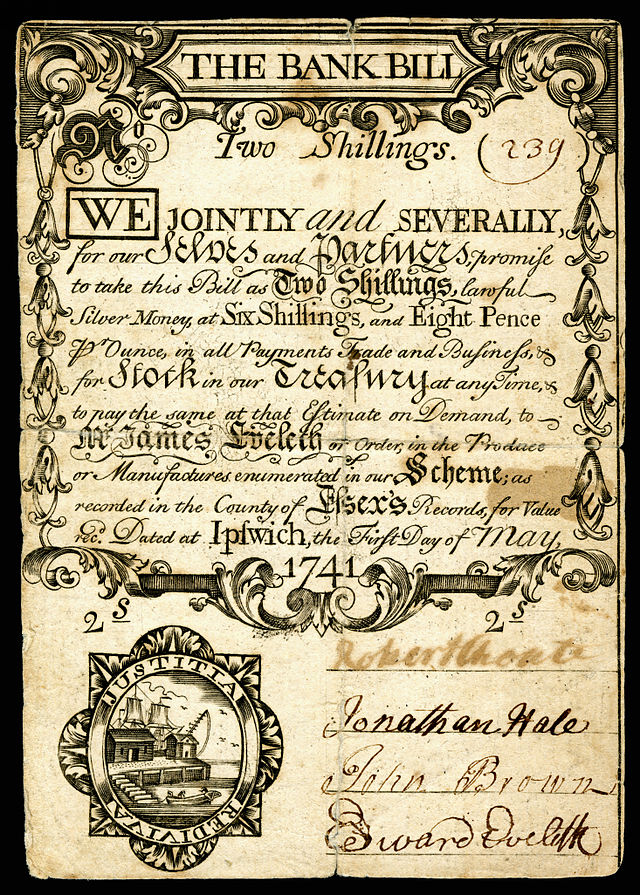 THE BANK BILL
No
Two Shillings. (239)
WE JOINTLY and SEVERALLY,
for our Selves and Partners, promise
to take this Bill as Two Shillings, lawful
Silver Money, at Six Shillings, and Eight Pence
Pr Ounce, in all Payments Trade and Business, &
for Stock in our Treasury at any Time, &
to pay the same at that Estimate on Demand, to
Mr James Eveleth or Order, in the Produce
or Manufactures enumerated in our Scheme; as
recorded in the County of Essex's Records, for Value
recd. Dated at Ipswich, the First Day of May,
1741
2s 2s
JUSTITIA
REDIVIVA
Robert Choate
Jonathan Hale
John Brown
Edward Eveleth